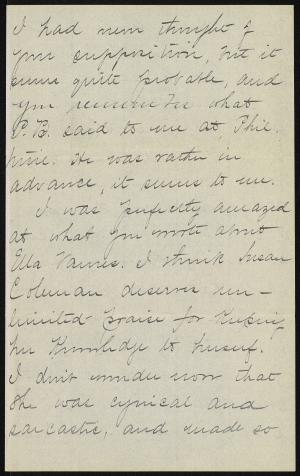 I had never thought of
your supposition, but it
seems quite probable, and
you remember what
P. B. said to me at Phil.
time. He was rather in
advance, it seems to me.
I was perfectly amazed
at what you wrote about
Ella I think Susan
Coleman deserves un-
limited praise for keeping
her knowledge to herself.
I don't wonder now that
she was cynical and
sarcastic, and made so